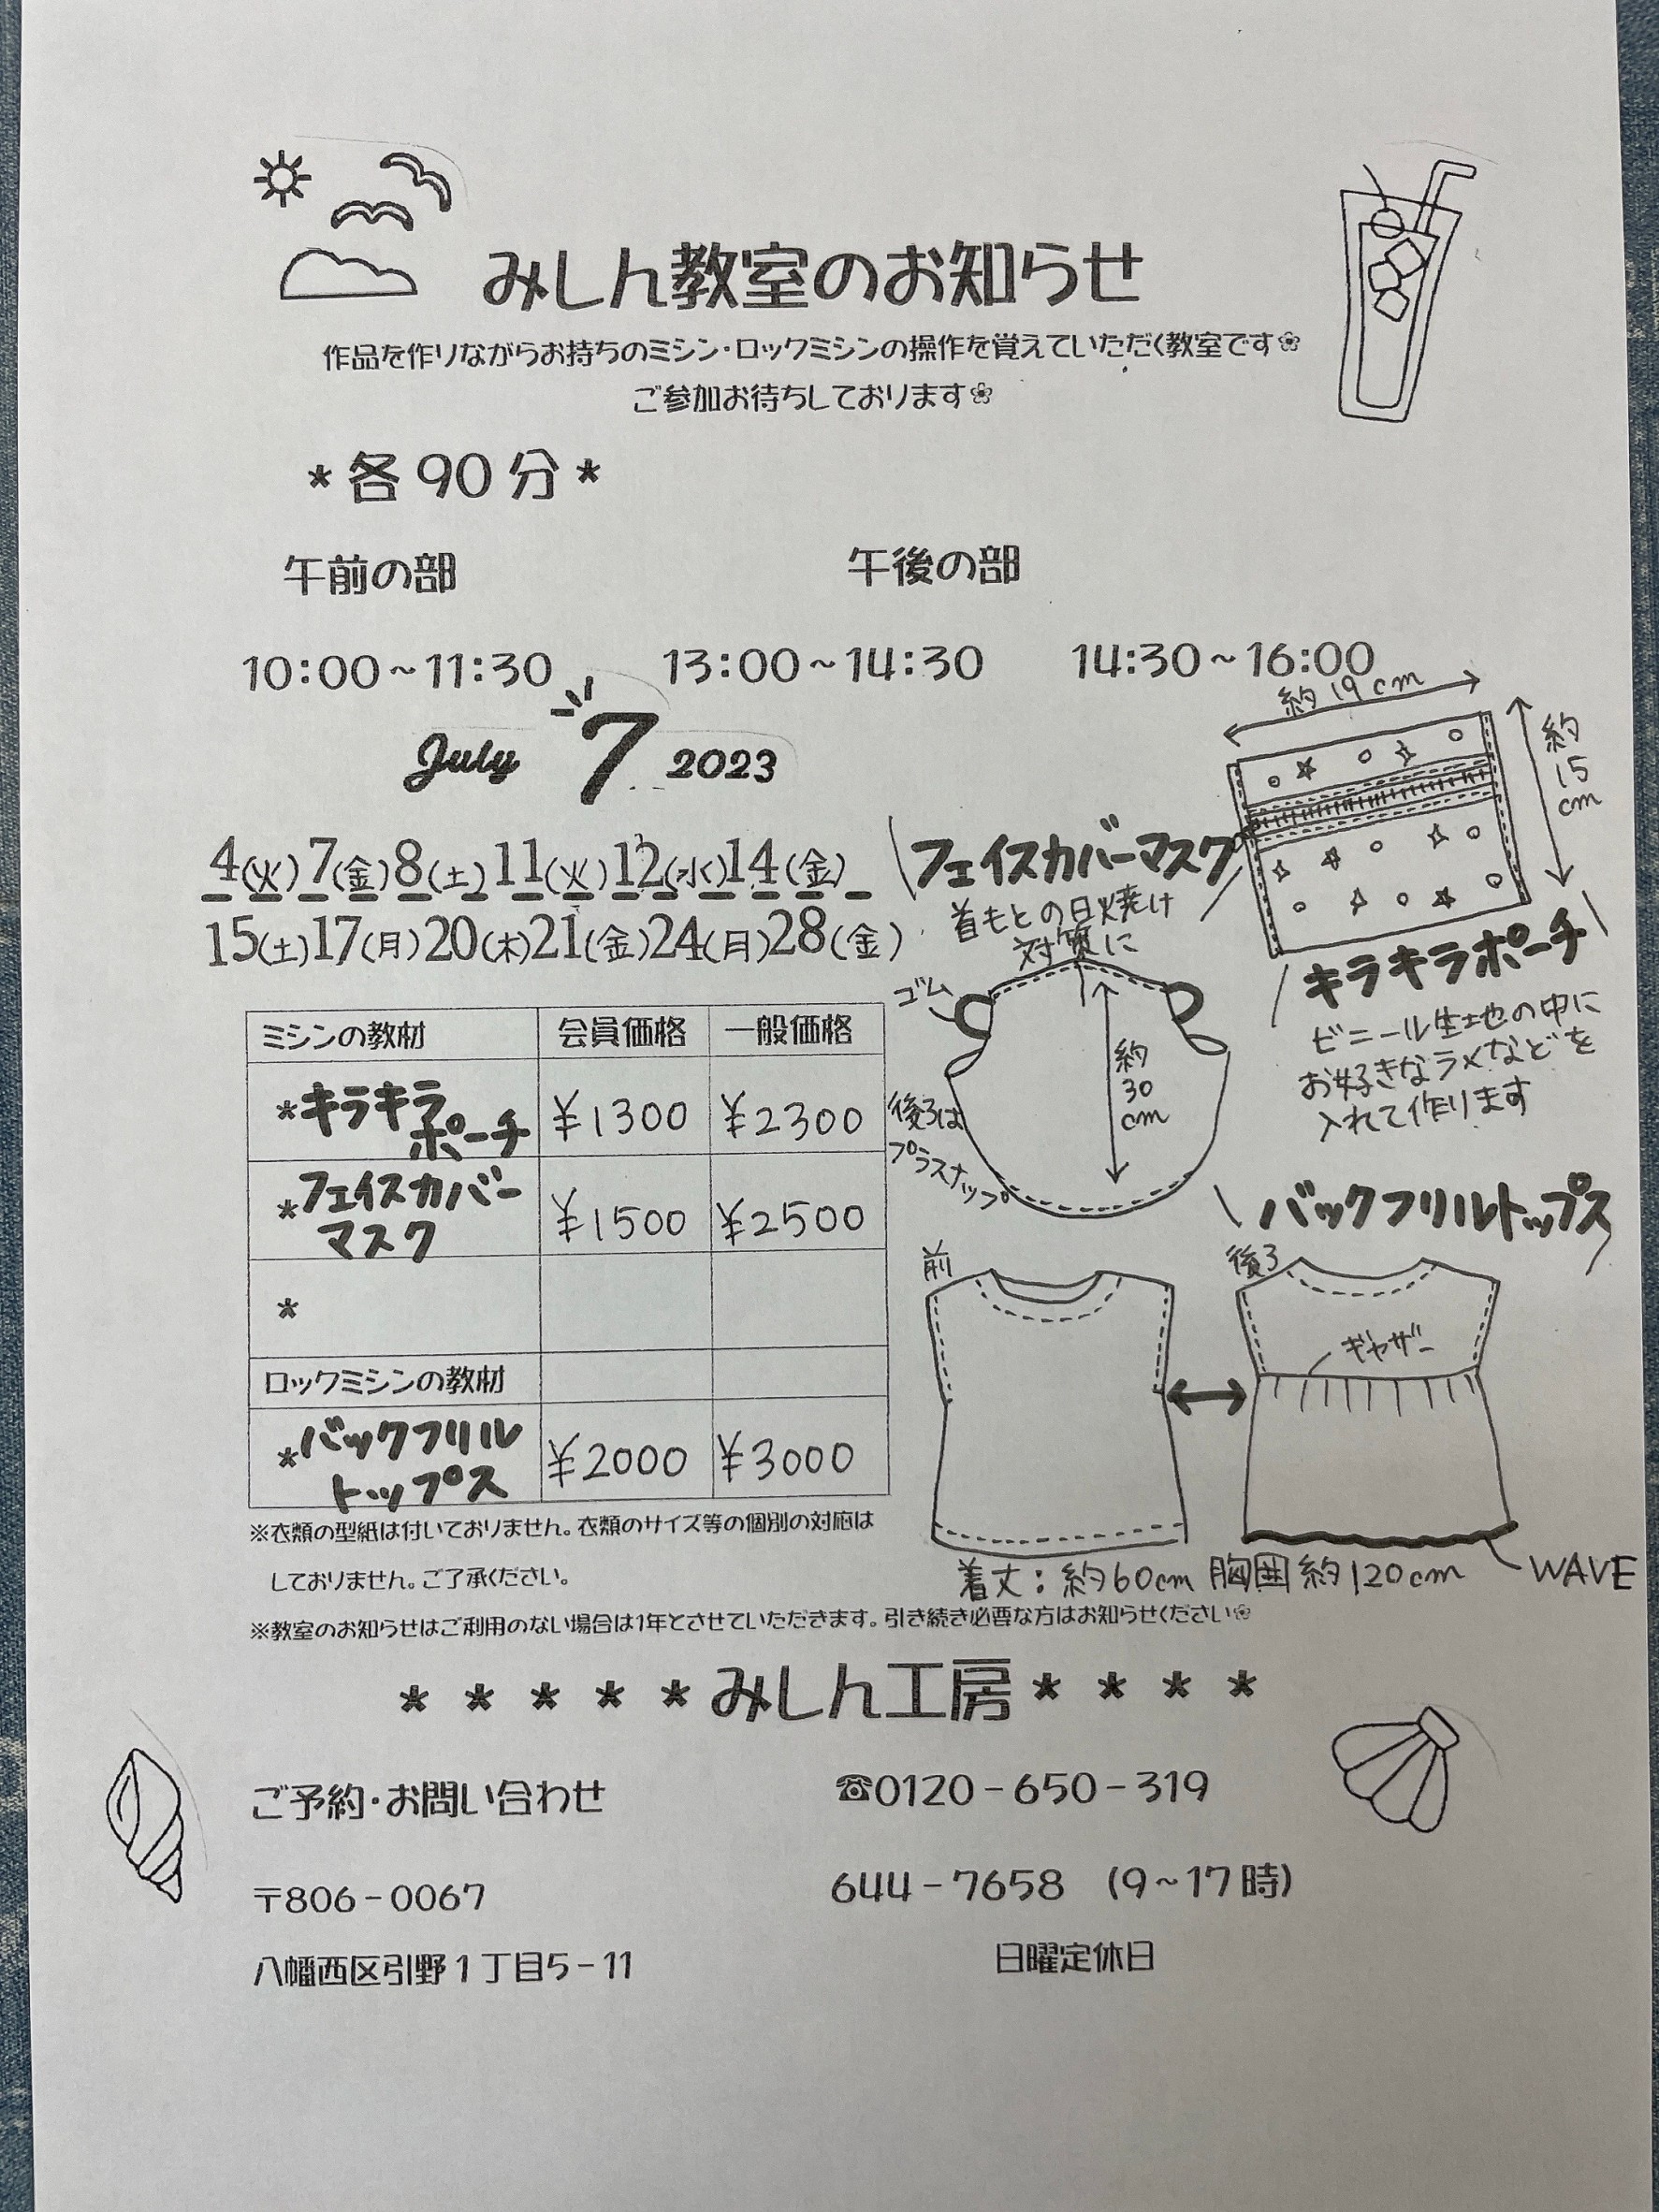 みしん教室のお知らせ
作品を作りながらお持ちのミシン・ロックミシンの操作を覚えていただく教室です❀
ご参加お待ちしております❀
*各90分*
午前の部 午後の部
10:00~11:30 13:00~14:30 14:30~16:00
July 7 2023
4(火)7(金)8(土)11(火)12(水)14(金)
15(土)17(月)20(木)21(金)24(月)28(金)
約19cm
約15cm
キラキラポーチ
ビニール生地の中に
お好きなラメなどを
入れて作ります
フェイスカバーマスク
首もとの日焼け
対策に
ゴム
約30cm
後ろは
プラスナップ
ミシンの教材 会員価格 一般価格
*キラキラポーチ ¥1300 ¥2300
*フェイスカバーマスク ¥1500 ¥2500
*
ロックミシンの教材
*バックフリルトップス ¥2000 ¥3000
バックフリルトップス
前 後ろ
ギャザー
WAVE
着丈:約60cm 胸囲約120cm
※衣類の型紙は付いておりません。衣類のサイズ等の個別の対応は
しておりません。ご了承ください。
※教室のお知らせはご利用のない場合は1年とさせていただきます。引き続き必要な方はお知らせください❀
* * * * *みしん工房* * * *
ご予約・お問い合わせ ☎0120-650-319
〒806-0067 644-7658 (9~17時)
八幡西区引野1丁目5-11 日曜定休日